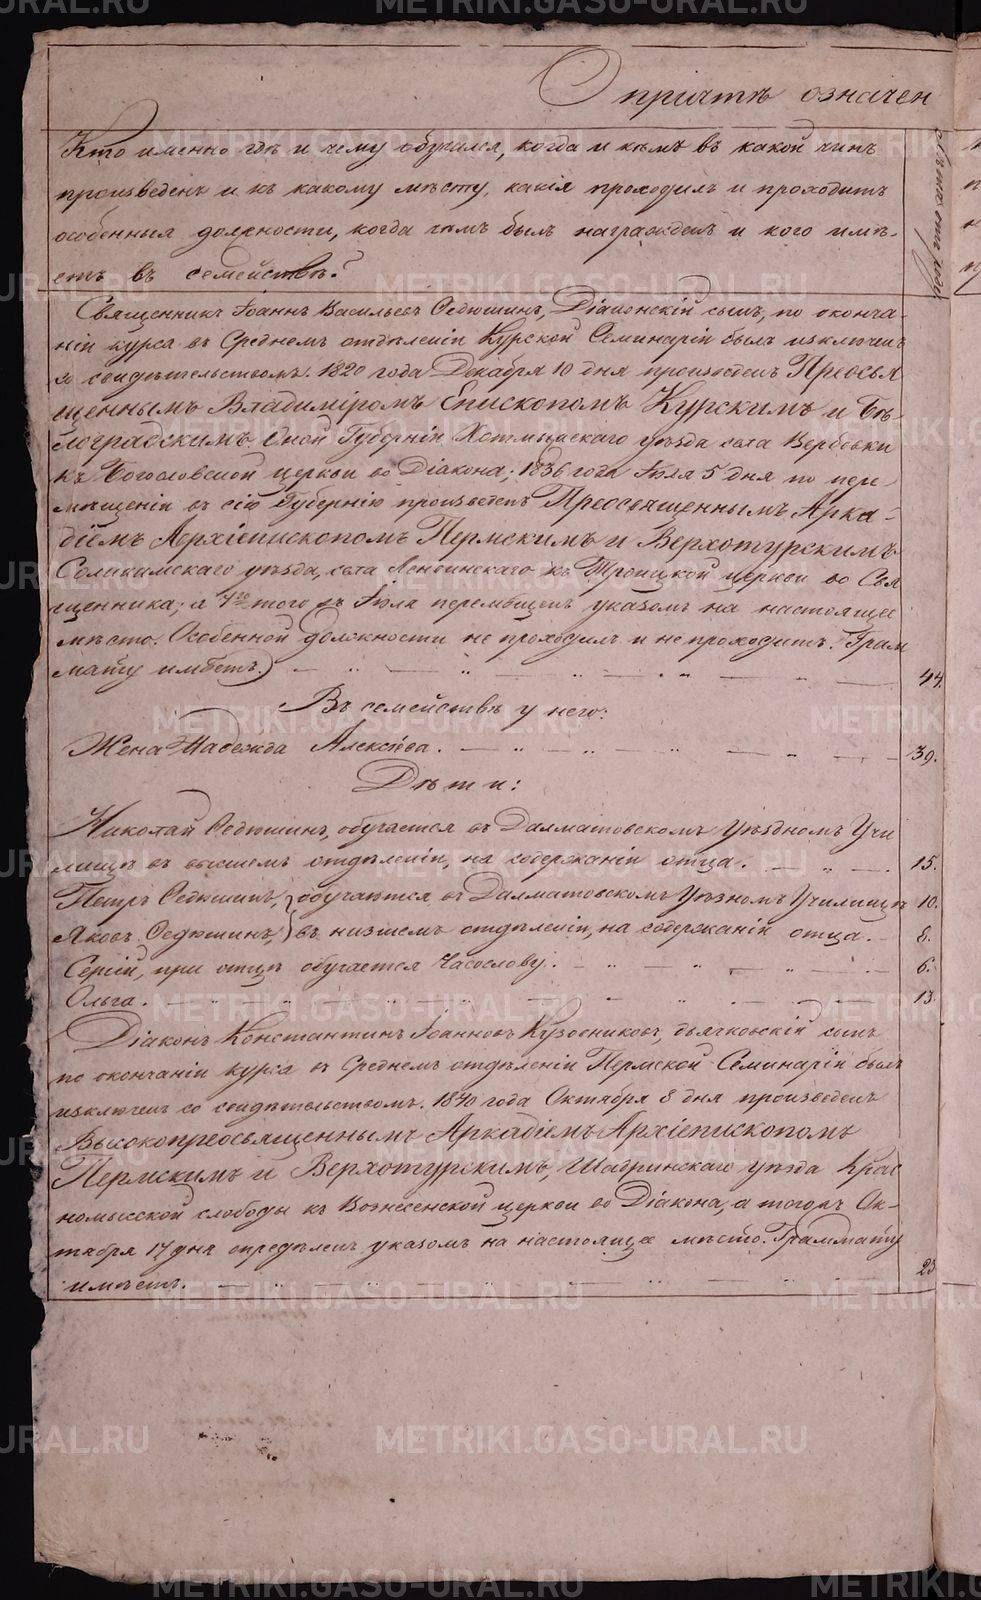 О причтѣ означен
Кто именно гдѣ и чему обучался, когда и кѣмъ въ какой чинъ
произведенъ и къ какому мѣсту, какія проходилъ и проходитъ
особенныя должности, когда чѣмъ былъ награжденъ и кого имѣ-
етъ въ семействѣ?
Священникъ Іоаннъ Васильевъ Федюшинъ, Діаконскій сынъ, по оконча-
ніи курса въ Среднемъ отдѣленіи Курской Семинаріи былъ изключенъ
со свидѣтельствомъ. 1820 года Декабря 10 дня произведенъ Преосвя
щеннымъ Владиміромъ Епископомъ Курскимъ и Бѣ-
лоградскимъ Оной Губерніи Хотмышскаго уѣзда села Вербовки
къ Богословской церкви во Діакона; 1836 года Іюля 5 дня по пере
мѣщеніи въ сію Губернію произведенъ Преосвященнымъ Арка-
діемъ Архіепископомъ Пермскимъ и Верхотурскимъ
Соликамскаго уѣзда, села Ленвинскаго къ Троицкой церкви во Свя
щенника; а того жъ Іюля перемѣщенъ указомъ на настоящее
мѣсто. Особенной должности не проходилъ и не проходитъ. Грам
мату имѣетъ. 44.
Въ семействѣ у него:
Жена Надежда Алексѣева. 39.
Дѣти:
Николай Федюшинъ, обучается въ Далматовскомъ Уѣздномъ Учи
лищѣ въ высшемъ отдѣленіи, на содержаніи отца. 15.
Петръ Федюшинъ, обучаются въ Далматовскомъ Уѣздномъ Училищѣ 10.
Яковъ Федюшинъ, въ низшемъ отдѣленіи, на содержаніи отца. 8.
Сергій, при отцѣ обучается Часослову. 6.
Ольга. 13.
Діаконъ Константинъ Іоанновъ Кузовниковъ, дьячковскій сынъ
по окончаніи курса въ Среднемъ отдѣленіи Пермской Семинаріи былъ
изключенъ со свидѣтельствомъ. 1840 года Октября 8 дня произведенъ
Высокопреосвященнымъ Аркадіемъ Архіепископомъ
Пермскимъ и Верхотурскимъ, Шадринскаго уѣзда Крас
номысской слободы къ Вознесенской церкви во Діакона, а тогожъ Ок-
тября 17 дня опредѣленъ указомъ на настоящее мѣсто. Граммату
имѣетъ. 23
METRIKI.GASO-URAL.RU